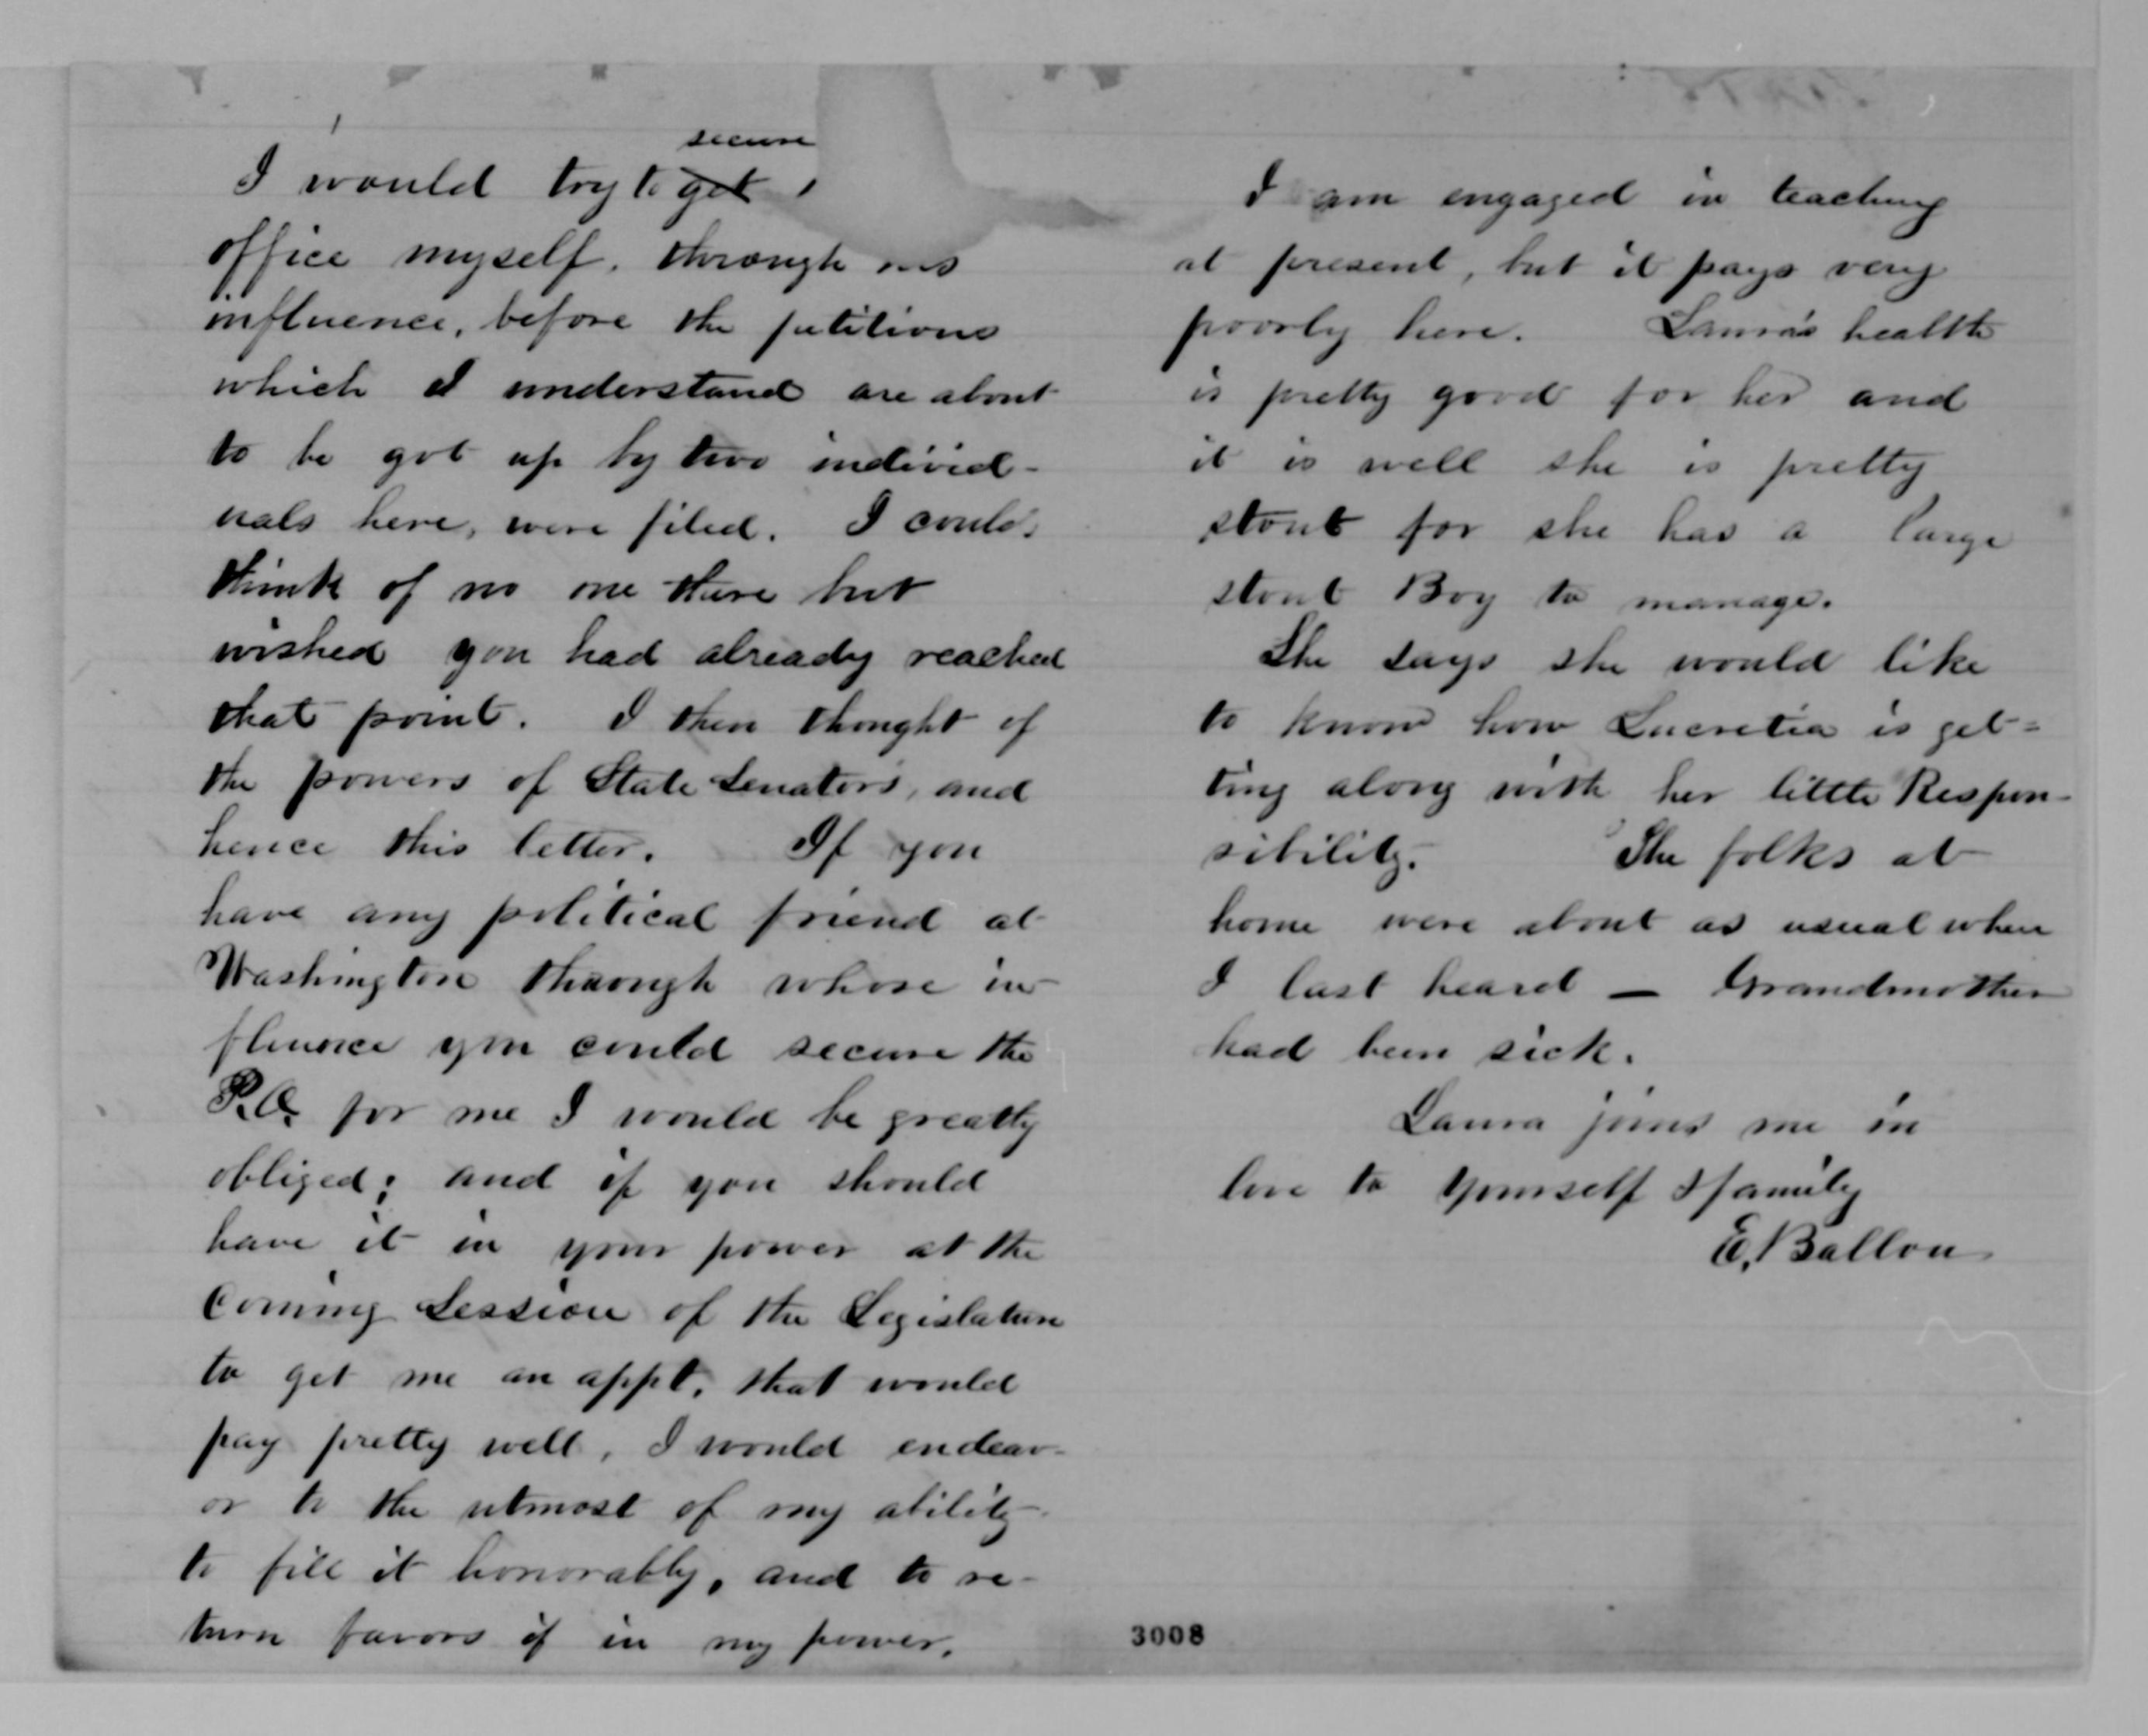 I would try to get secure
office myself, through his
influence, before the petitions
which I understand are about
to be got up by two individ-
uals here, were filed. I could
think of no one there but
wished you had already reached
that point. I then thought of
the powers of State Senators, and
hence this letter. If you
have any political friend at
Washington through whose in-
fluence you could secure the
P.O. for me I would be greatly
obliged; and if you should
have it in your power at the
Coming Session of the Legislature
to get me an appt. that would
pay pretty well, I would endeav-
or to the utmost of my ability
to fill it honorably, and to re-
turn favors if in my power.
I am engaged in teaching
at present, but it pays very
poorly here. Laura's health
is pretty good for her and
it is well she is pretty
stout for she has a large
stout Boy to manage.
She says she would like
to know how Lucretia is get-
ting along with her little Respon-
sibility. The folks at
home were about as usual when
I last heard — Grandmother
had been sick.
Laura joins me in
love to yourself & family
E. Ballou
3008